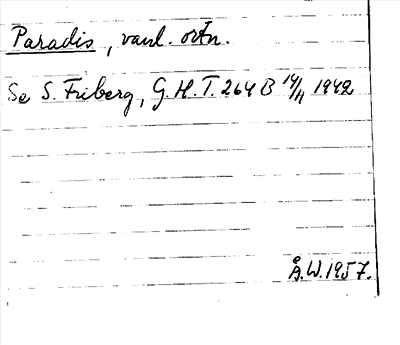 Paradis, vanl. ortn.
Se S. Friberg, G.H.T. 264 B 14/11 1942
Å.W. 1957.